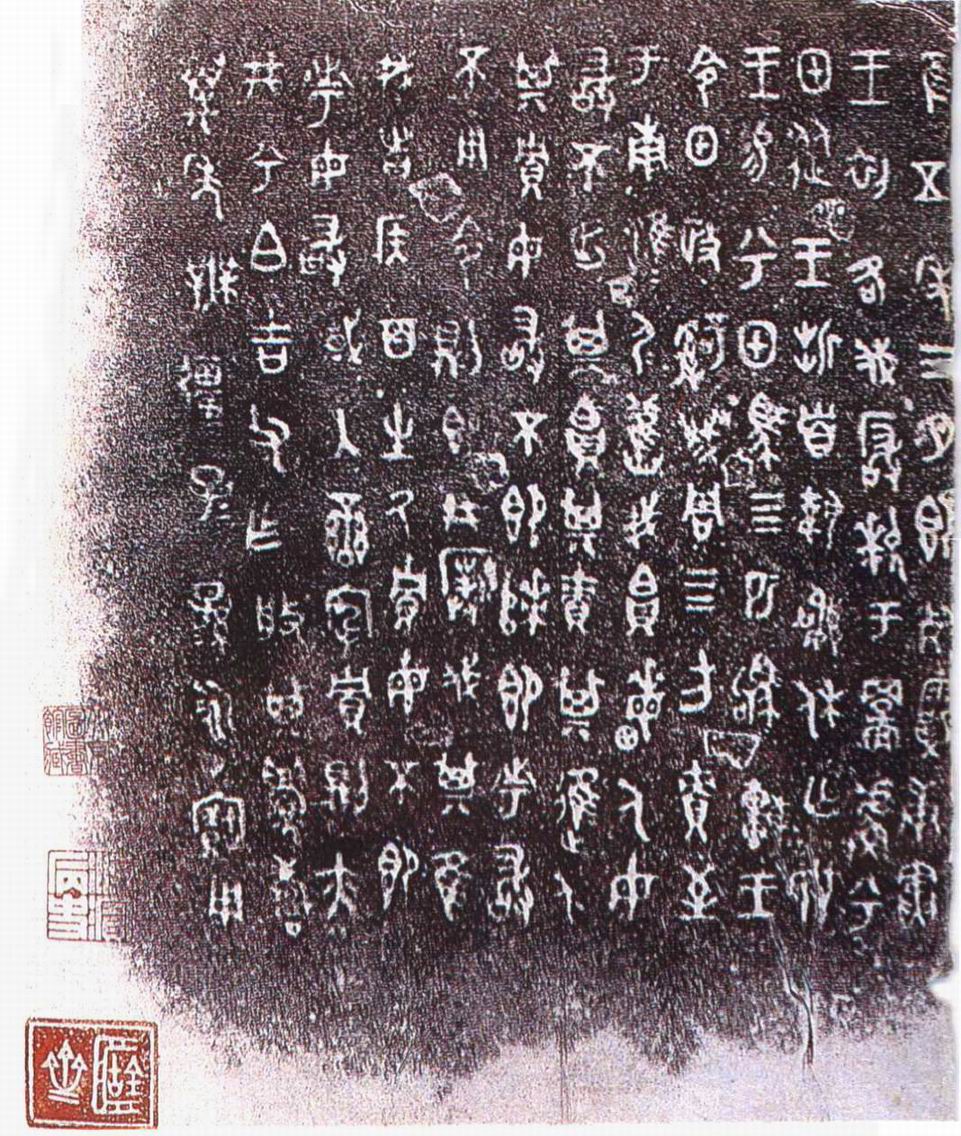 隹五年三月既死霸庚寅
王初各伐玁狁于䣙䖒兮
甲從王折首執訊休亡敃
王易兮甲馬四匹駒車王
令甲政司成周四方責至
于南淮〻夷〻舊我帛畮人毋
敢不出其帛其責其進人
其貯毋敢不即次即市敢
不用令則即井撲伐其隹
我者侯百生氒貯毋不即
市毋敢或入蠻宄貯則亦
井兮白吉父乍般其眉壽
萬年無疆子〻孫〻永寶用